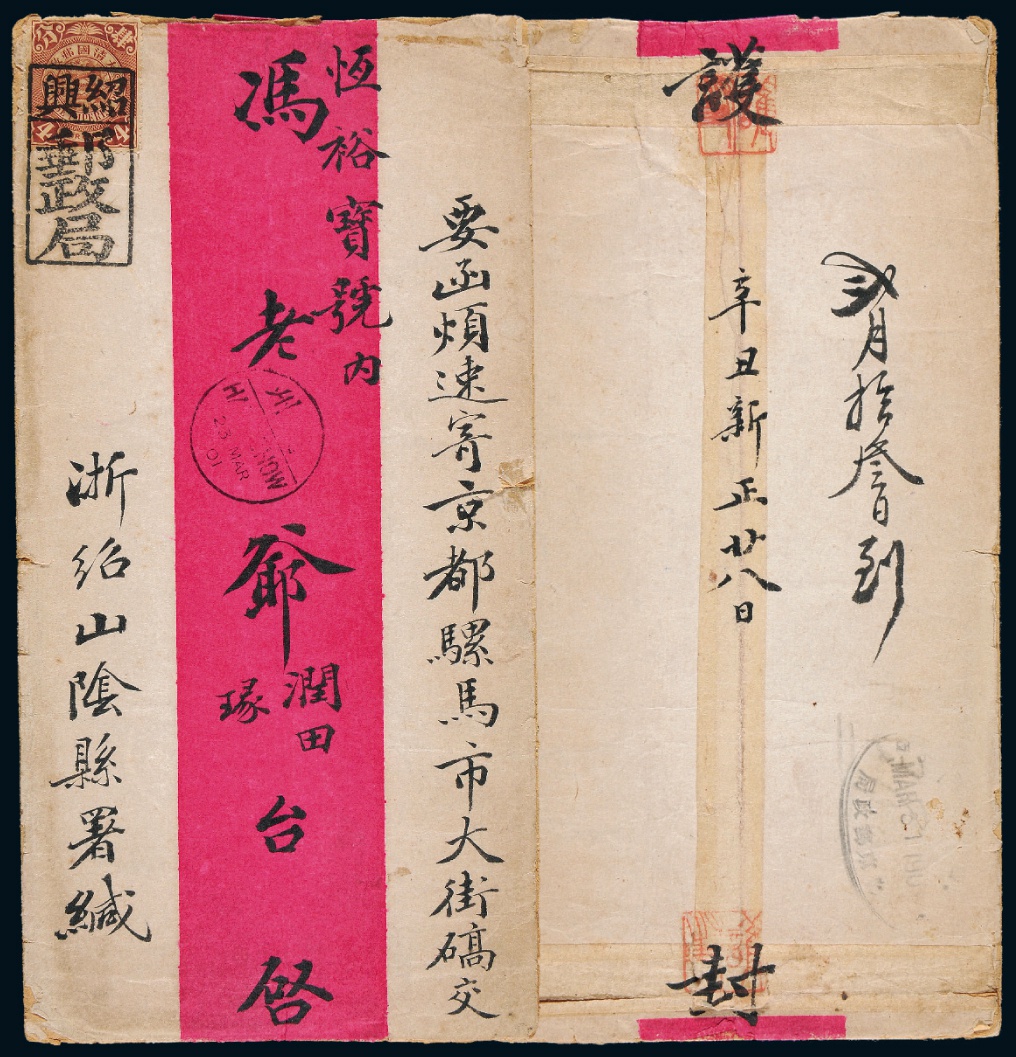 護
封
貳月拾叁日到
辛丑新正廿八日
要函煩速寄京都騾馬市大街碻交
恆裕寶號內
馮老爺潤田琢台啓
浙紹山陰縣署緘
肆分
紹興
郵政局
23 MAR
01